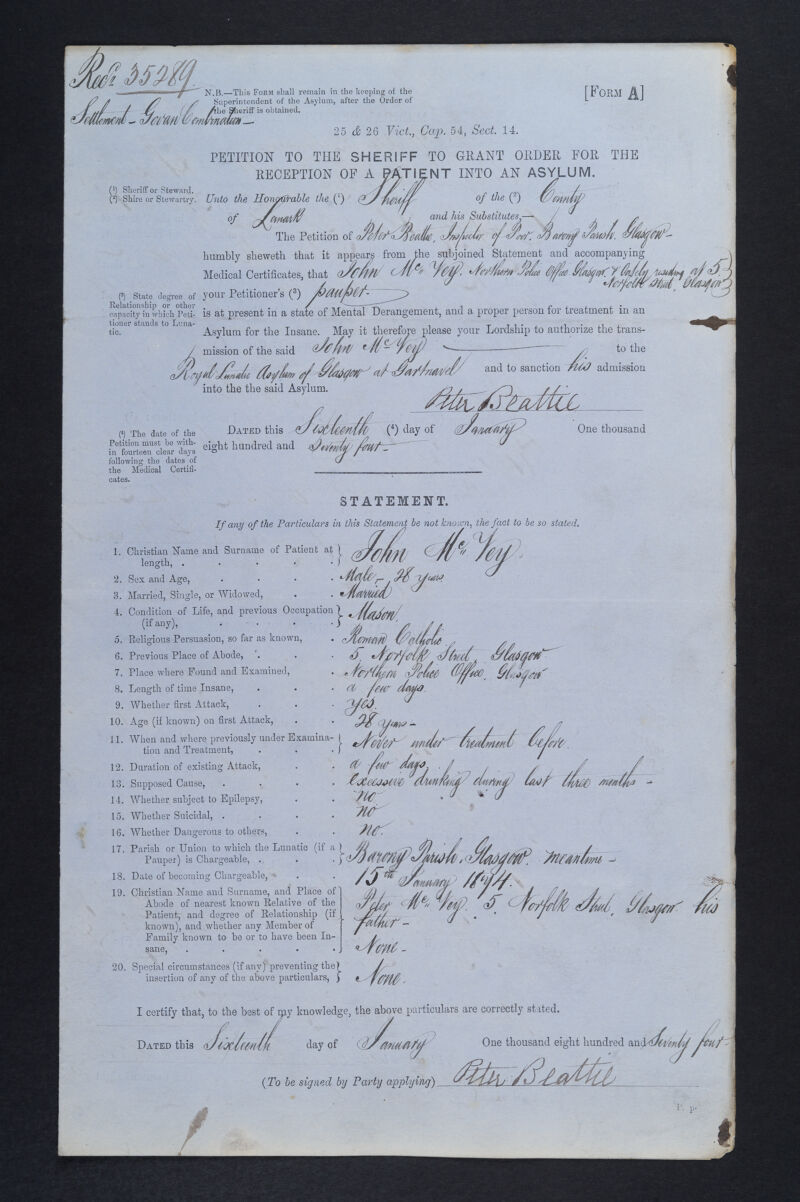 Recd. 35289
Settlement - Govan Combination -
N.B.—This Form shall remain in the keeping of the
Superintendent of the Asylum, after the Order of
the Sheriff is obtained.
[Form A]
25 & 26 Vict., Cap. 54, Sect. 14.
PETITION TO THE SHERIFF TO GRANT ORDER FOR THE
RECEPTION OF A PATIENT INTO AN ASYLUM.
(¹) Sheriff or Steward.
(²) Shire or Stewartry.
Unto the Honourable the (¹) Sheriff of the (²) County
of Lanark and his Substitutes,—
The Petition of Peter Beattie, Inspector of Poor, Barony Parish, Glasgow -
humbly sheweth that it appears from the subjoined Statement and accompanying
Medical Certificates, that John Mc.Vey. Northern Police Office Glasgow, & lately residing at 5
Norfolk Street, Glasgow
(³) State degree of
Relationship or other
capacity in which Peti-
tioner stands to Luna-
tic.
your Petitioner's (³) pauper
is at present in a state of Mental Derangement, and a proper person for treatment in an
Asylum for the Insane. May it therefore please your Lordship to authorize the trans-
mission of the said John Mc Vey to the
Royal Lunatic Asylum of Glasgow at Gartnavel and to sanction his admission
into the the said Asylum.
Peter Beattie
(⁴) The date of the
Petition must be with-
in fourteen clear days
following the dates of
the Medical Certifi-
cates.
Dated this Sixteenth (⁴) day of January One thousand
eight hundred and Seventy four -
STATEMENT.
If any of the Particulars in this Statement be not known, the fact to be so stated.
1. Christian Name and Surname of Patient at
length, . . . . . John Mc. Vey.
2. Sex and Age, . . . . Male - 28 years
3. Married, Single, or Widowed, . . Married
4. Condition of Life, and previous Occupation
(if any), . . . . Mason.
5. Religious Persuasion, so far as known, . Roman Catholic
6. Previous Place of Abode, . . . 5, Norfolk Street, Glasgow
7. Place where Found and Examined, . Northern Police Office, Glasgow
8. Length of time Insane, . . . a few days.
9. Whether first Attack, . . . yes.
10. Age (if known) on first Attack, . . 28 years -
11. When and where previously under Examina-
tion and Treatment, . . . Never under treatment before.
12. Duration of existing Attack, . . a few days.
13. Supposed Cause, . . . . excessive drinking during last three months -
14. Whether subject to Epilepsy, . . no
15. Whether Suicidal, . . . . no
16. Whether Dangerous to others, . . no.
17. Parish or Union to which the Lunatic (if a
Pauper) is Chargeable, . . . Barony Parish, Glasgow. meantime -
18. Date of becoming Chargeable, . . 15th January 1874.
19. Christian Name and Surname, and Place of
Abode of nearest known Relative of the
Patient, and degree of Relationship (if
known), and whether any Member of
Family known to be or to have been In-
sane, . . . . .
Peter Mc. Vey. 5, Norfolk Street, Glasgow his
father -
None -
20. Special circumstances (if any) preventing the
insertion of any of the above particulars, None.
I certify that, to the best of my knowledge, the above particulars are correctly stated.
Dated this Sixteenth day of January One thousand eight hundred and Seventy four -
(To be signed by Party applying) Peter Beattie